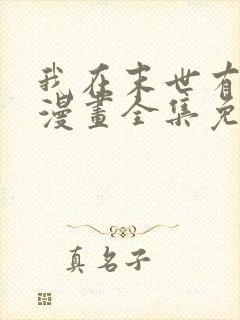 我在末世有
漫畫全集免
真名子